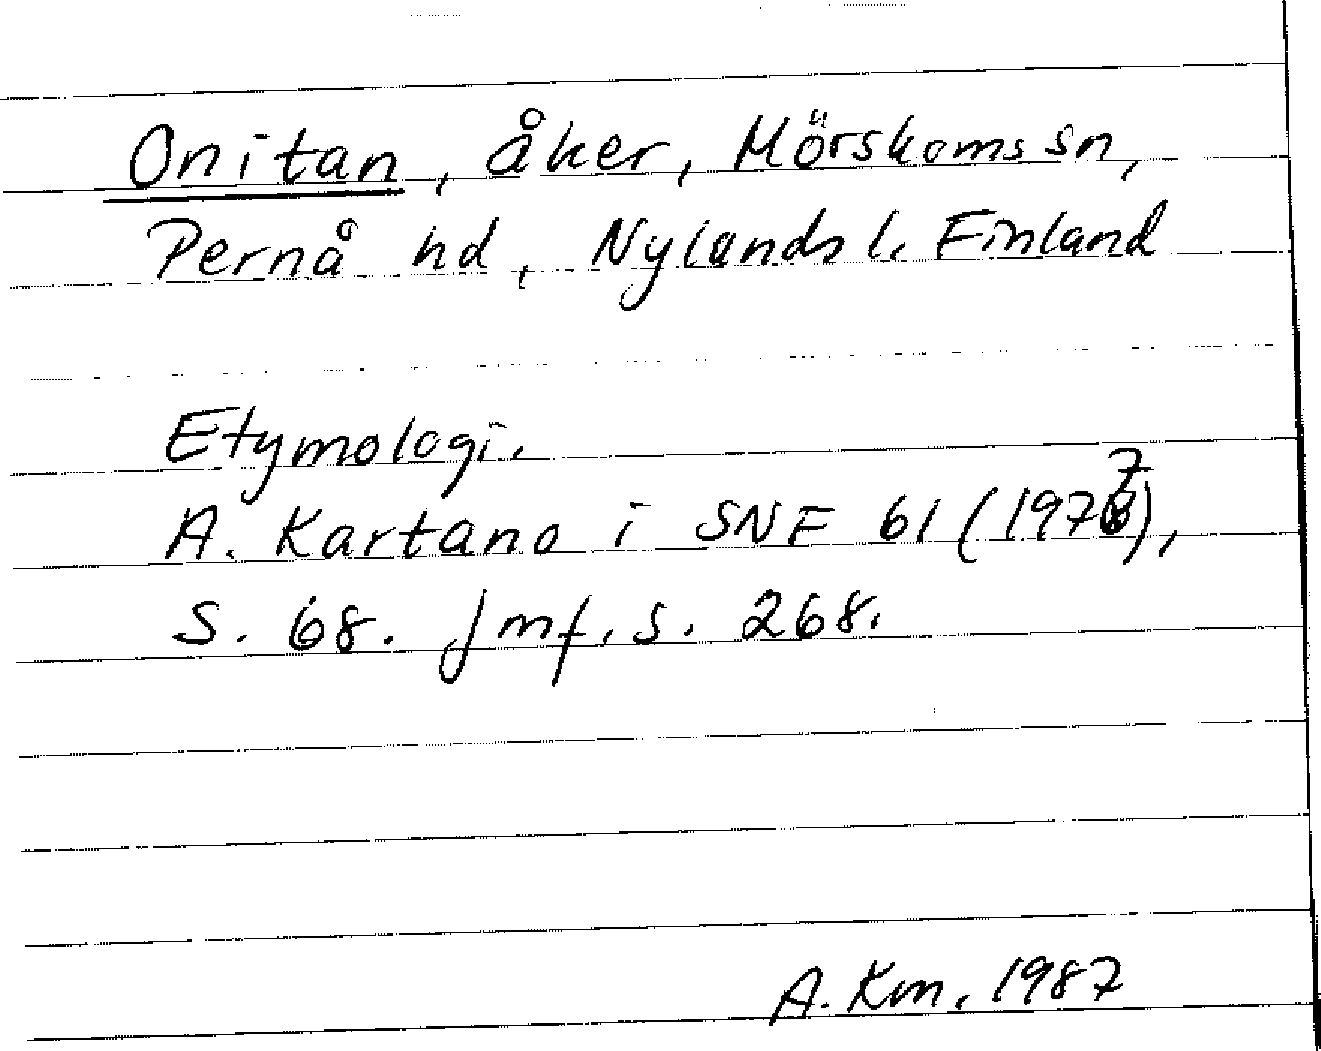 Onitan, åker, Mörskoms sn,
Pernå hd, Nylands l. Finland
Etymologi.
A. Kartano i SNF 61 (1977),
S. 68. Jmf. s. 268.
A. Km. 1987